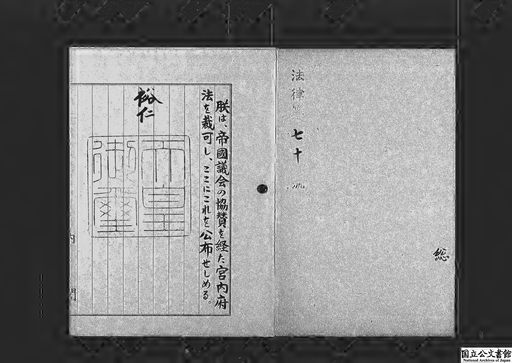 法律
七十
総
朕は、帝國議会の協賛を経た宮内府
法を裁可し、ここにこれを公布せしめる。
裕仁
天皇
御璽
内
閣
国立公文書館
National Archives of Japan